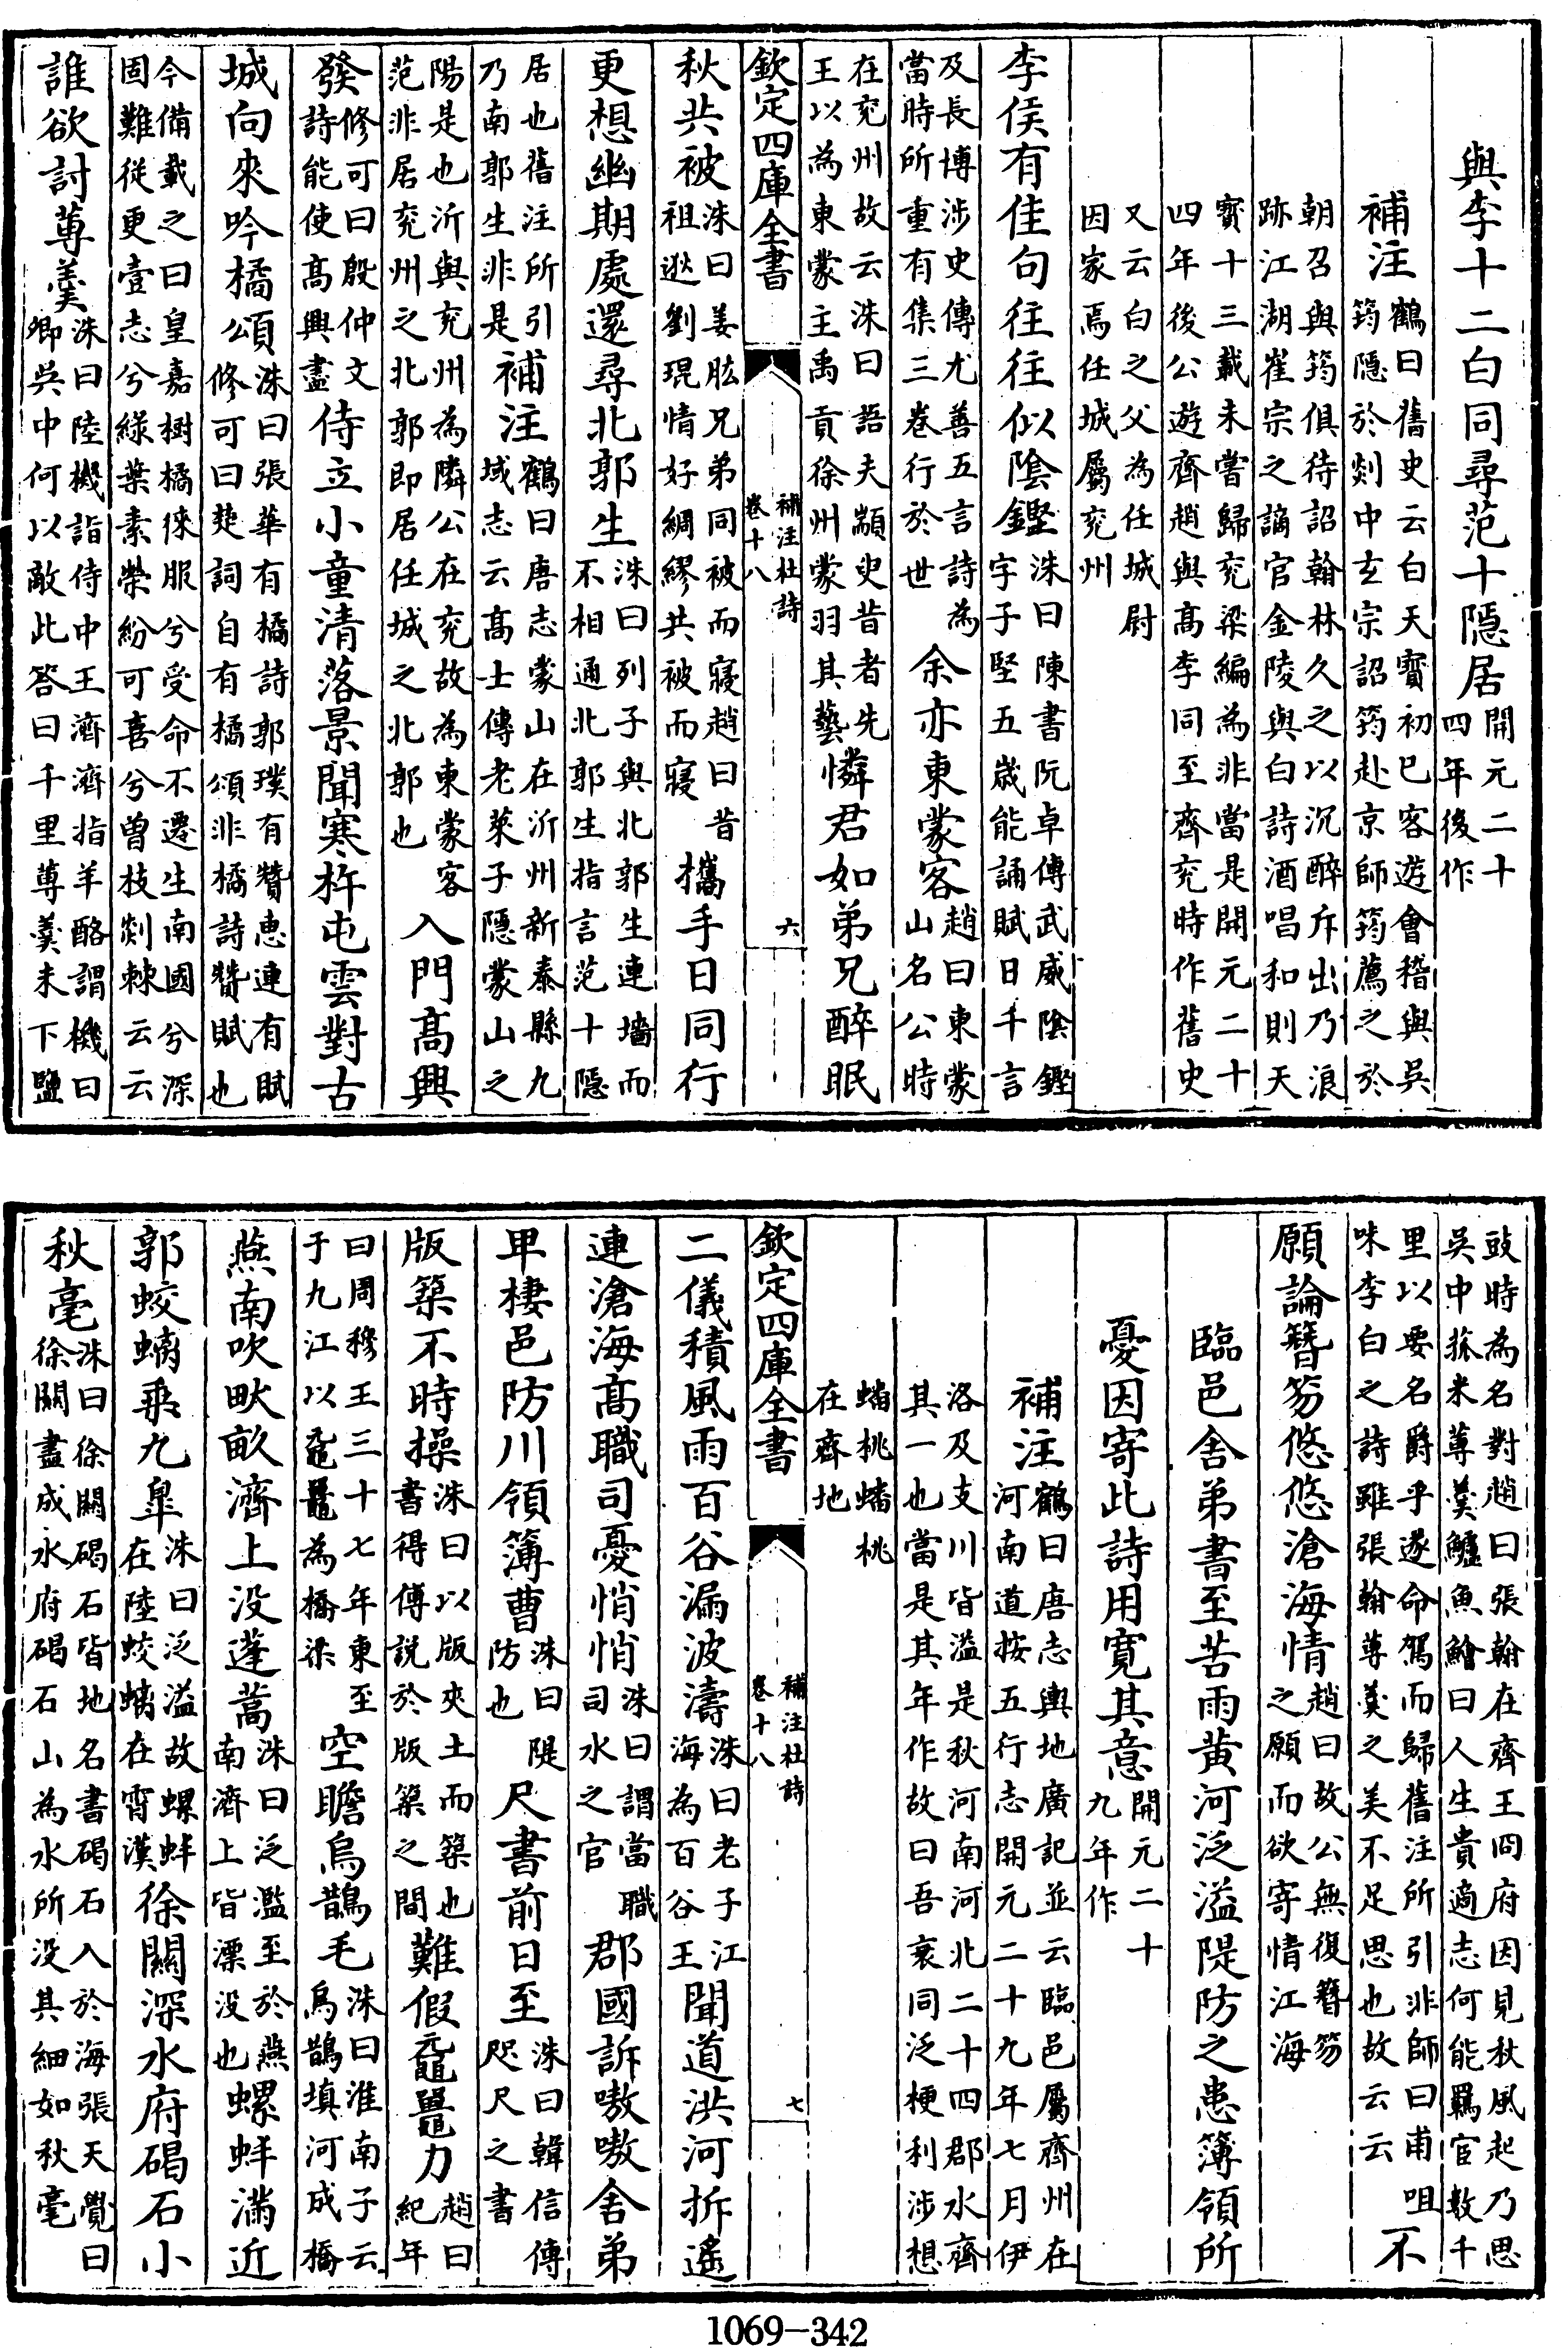 與李十二白同尋范十隠居開元二十四年後作
補注鶴曰舊史云白天寶初巳客遊會稽與吳筠隠於剡中玄宗詔筠赴京師筠薦之於
朝召與筠俱待詔翰林久之以沉醉斥出乃浪跡江湖崔宗之謫官金陵與白詩酒唱和則天
寳十三載未嘗歸兖梁編為非當是開元二十四年後公遊齊趙與高李同至齊兖時作舊史
又云白之父為任城尉因家焉任城屬兖州
李侯有佳句往往似隂鏗洙曰陳書阮卓傳武威隂鏗字子堅五嵗能誦賦日千言
及長博涉史傳尤善五言詩為當時所重有集三卷行於世余亦東蒙客趙曰東蒙山名公時
在兖州故云洙曰語夫顓臾昔者先王以為東蒙主禹貢徐州蒙羽其藝憐君如弟兄醉眠
欽定四庫全書 補注杜詩卷十八 六
秋共被洙曰姜肱兄弟同被而寢趙曰昔祖逖劉琨情好綢繆共被而寢擕手日同行
更想幽期處還尋北郭生洙曰列子與北郭生連墻而不相通北郭生指言范十隠
居也舊注所引乃南郭生非是補注鶴曰唐志蒙山在沂州新泰縣九域志云高士傳老萊子隠蒙山之
陽是也沂與兖州為隣公在兖故為東蒙客范非居兖州之北郭即居任城之北郭也入門高興
發修可曰殷仲文詩能使高興盡侍立小童清落景聞寒杵屯雲對古
城向來吟橘頌洙曰張華有橘詩郭璞有贊惠連有賦修可曰楚詞自有橘頌非橘詩贊賦也
今備載之曰皇嘉樹橘徠服兮受命不遷生南國兮深固難從更壹志兮綠葉素榮紛可喜兮曽枝剡棘云云
誰欲討蓴羮洙曰陸機詣侍中王濟濟指羊酪謂機曰卿吳中何以敵此答曰千里蓴羮未下鹽
豉時為名對趙曰張翰在齊王冏府因見秋風起乃思吳中菰米蓴羮鱸魚鱠曰人生貴適志何能羈官數千
里以要名爵乎遂命駕而歸舊注所引非師曰甫咀味李白之詩雖張翰蓴羮之美不足思也故云云不
願論簪笏悠悠滄海情趙曰故公無復簪笏之願而欲寄情江海
臨邑舍弟書至苦雨黄河泛溢隄防之患簿領所
憂因寄此詩用寛其意開元二十九年作
補注鶴曰唐志輿地廣記並云臨邑屬齊州在河南道按五行志開元二十九年七月伊
洛及支川皆溢是秋河南河北二十四郡水齊其一也當是其年作故曰吾衰同泛梗利涉想
蟠桃蟠桃在齊地
欽定四庫全書 補注杜詩卷十八 七
二儀積風雨百谷漏波濤洙曰老子江海為百谷王聞道洪河拆遙
連滄海高職司憂悄悄洙曰謂當職司水之官郡國訴嗷嗷舍弟
卑棲邑防川領簿曹洙曰隄防也尺書前日至洙曰韓信傳咫尺之書
版築不時操洙曰以版夾土而築也書得傳説於版築之間難假黿鼉力趙曰紀年
曰周穆王三十七年東至于九江以黿鼉為橋梁空瞻烏鵲毛洙曰淮南子云烏鵲填河成橋
燕南吹畎畝濟上没蓬蒿洙曰泛濫至於燕南濟上皆漂没也螺蚌滿近
郭蛟螭乘九臯洙曰泛溢故螺蚌在陸蛟螭在霄漢徐關深水府碣石小
秋毫洙曰徐關碣石皆地名書碣石入於海張天覺曰徐關盡成水府碣石山為水所没其細如秋毫
1069-342